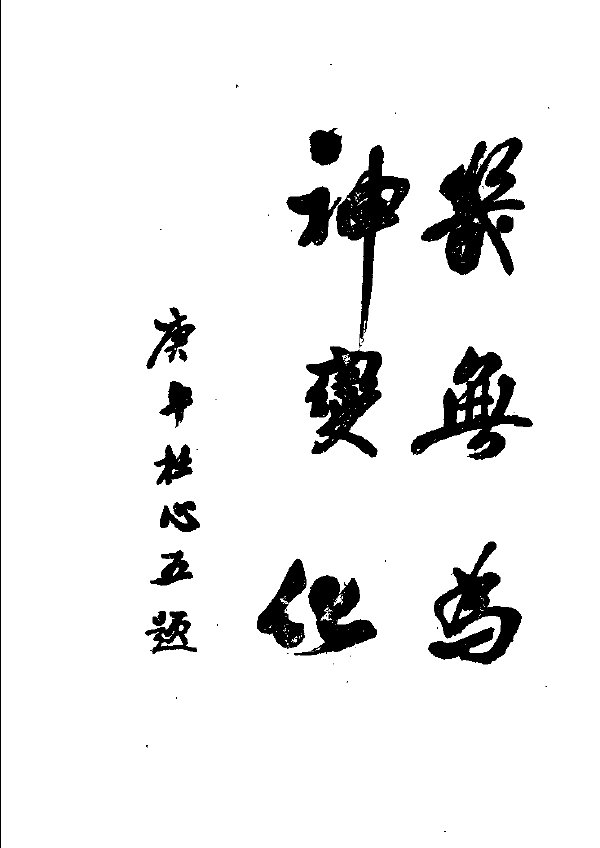 無為
神變化
庚午杜心五題